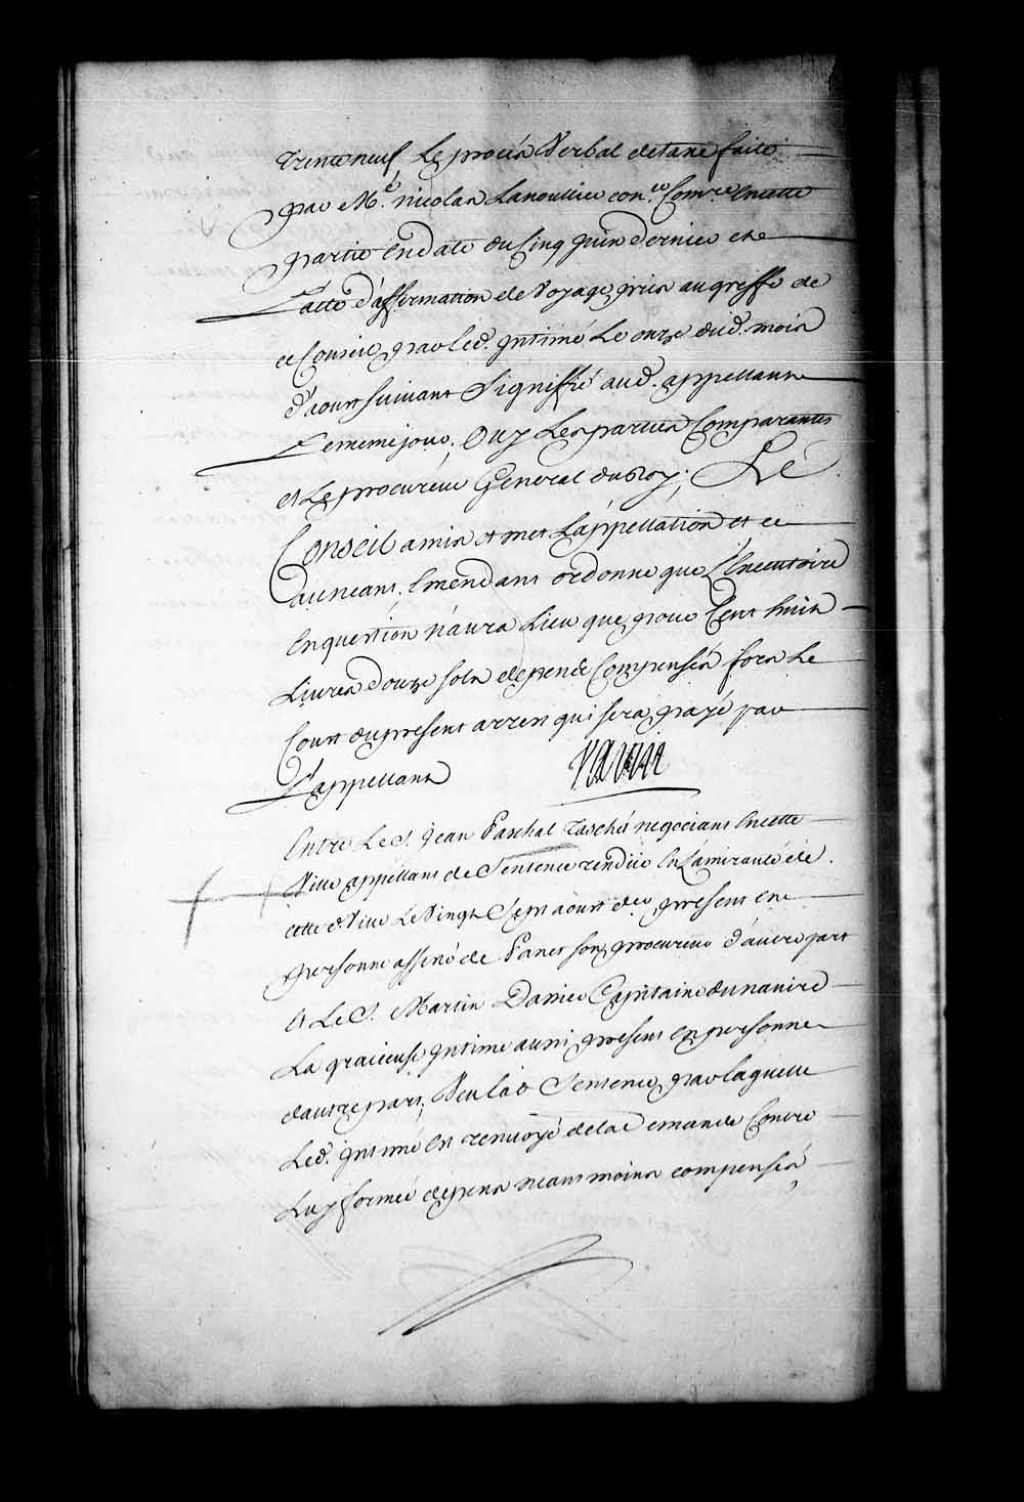 trente neuf Le procés Verbal de taxe faite
par Me. nicolas Lanoullier conr. Comre. En cette
partie En date du Cinq juin dernier et
L'acte d'affirmation de Voyage pris au greffe de
ce Conseil par led. Intimé Le onze dud. mois
d'aoust suivant Signiffié aud. appellant
Le meme jour; Ouy Les parties Comparantes
et Le procureur General du Roy; Le
Conseil a mis et met L'appellation et ce
au neant. Emendant ordonne que L'Executoire
En question n'aura Lieu que pour Cent huit
Livres douze sols depens Compensés fors Le
Coust du present arrest qui sera payé par
L'appellant
Varin
Entre Le S. Jean Paschal Taché negociant En cette
Ville appellant de Sentence rendüe En L'amirauté de
cette d. Ville Le Vingt Sept aoust der. present en
personne assisté de Panet son procureur d'une part
Et Le S. Martin Daniel Capitaine du navire
La gracieuse Intimé aussi present En personne
d'autre part; Veu lad. Sentence par laquelle
Led. Intimé Est renvoyé de la demande Contre
Luy formée depens neantmoins compensés